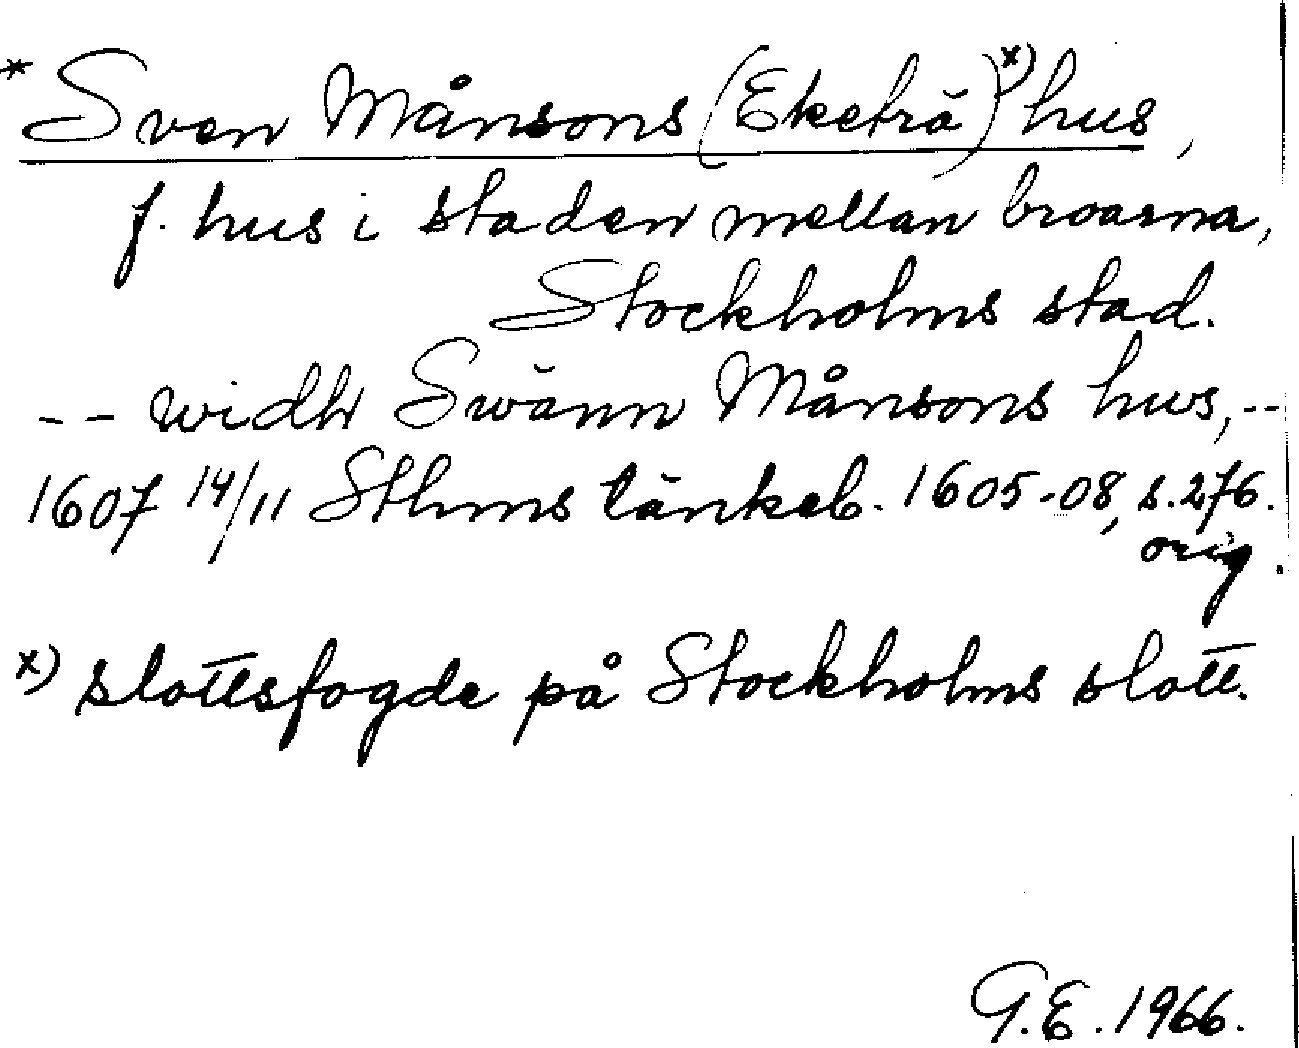 * Sven Månsons (Eketrä)x) hus,
f. hus i staden mellan broarna,
Stockholms stad.
-- widh Swänn Månsons hws,--
1607 14/11 Sthms tänkeb. 1605-08, s.276.
orig.
x) slottsfogde på Stockholms slott.
G.E. 1966.